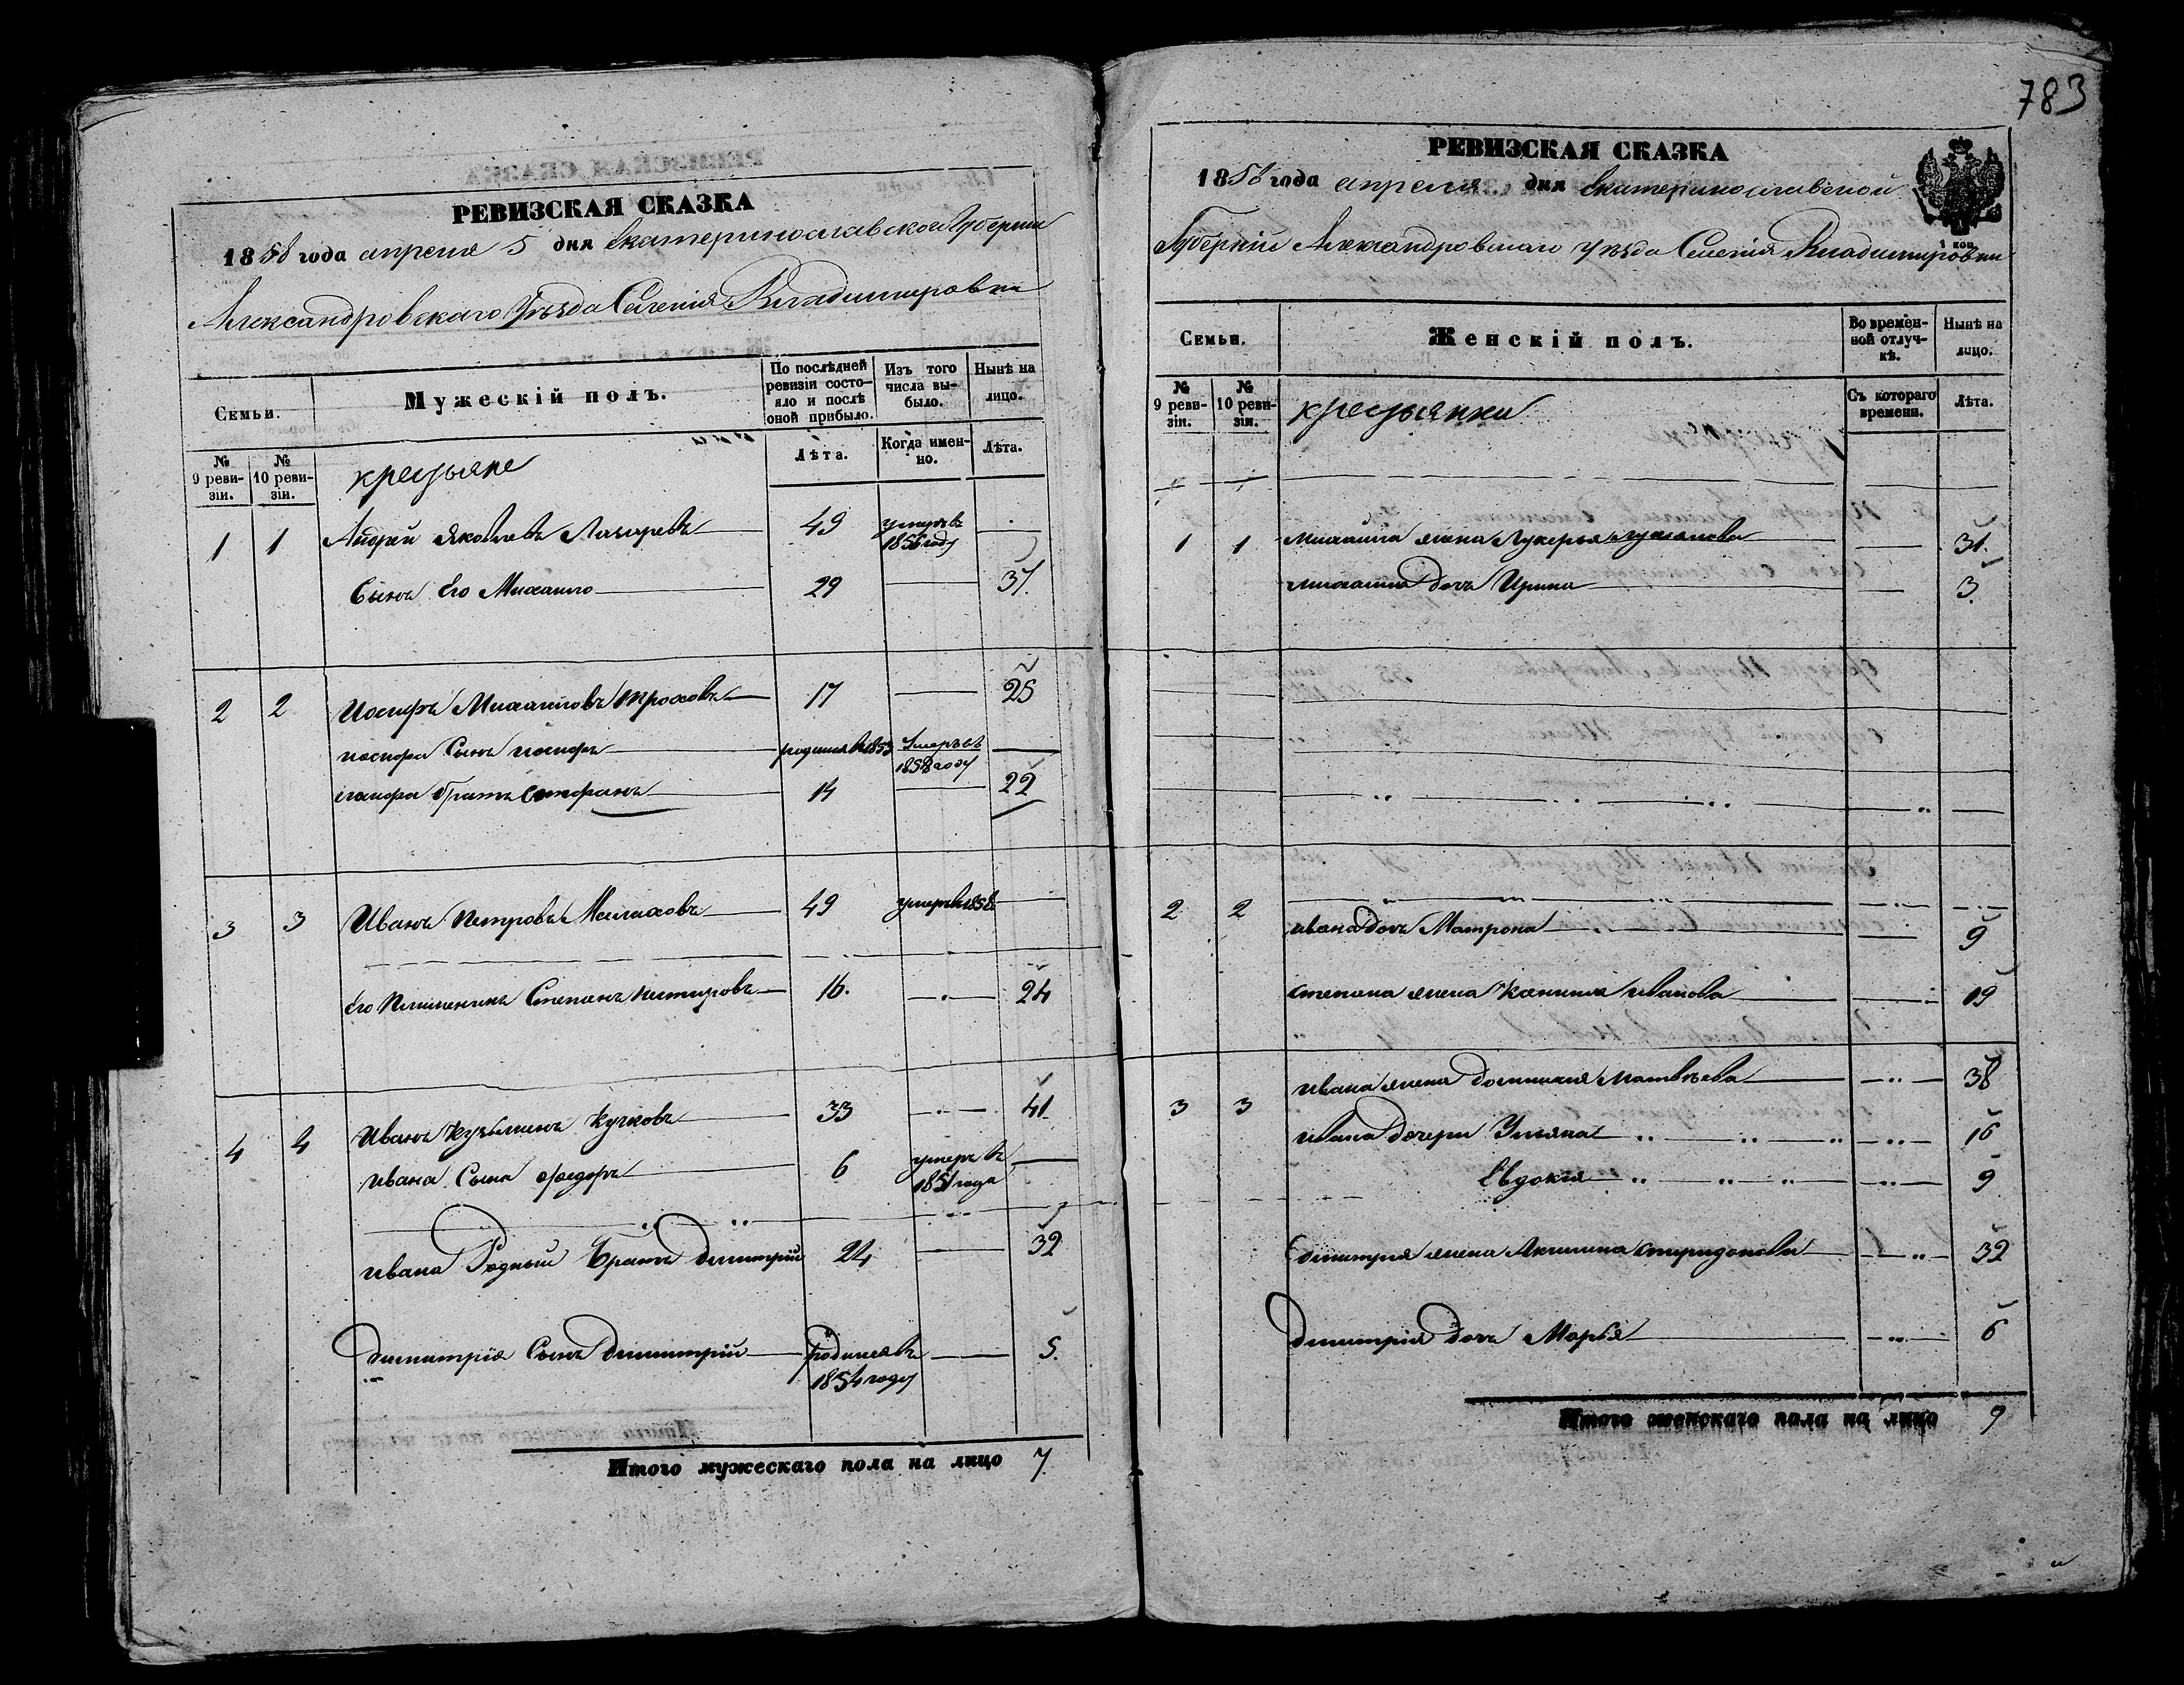 783
РЕВИЗСКАЯ СКАЗКА
1858 года апреля 5 дня Екатеринославской Губернии
Александровского Уѣзда Селенія Владимировки
Семьи.
Мужескій полъ.
По послѣдней ревизіи состояло и послѣ оной прибыло.
Изъ того числа выбыло.
Нынѣ на лицо.
№ 9 ревизіи.
№ 10 ревизіи.
крестьяне
Лѣта.
Когда именно.
Лѣта.
1 1 Андрей Яковлевъ Лазаревъ 49 умеръ въ 1856 году
Сынъ Его Михайло 29 37.
2 2 Иосифъ Михайловъ 17 25
иосифа Сынъ иосифъ родился въ 1853 Умеръ въ 1858 году
иосифа братъ Стефанъ 14 22
3 3 Иванъ Петровъ Малаховъ 49 умеръ въ 1858
Его Племенникъ Степанъ 16. 24
4 4 Иванъ Кузьминъ Кучковъ 33 41
ивана Сынъ Федоръ 6 умеръ въ 1851 года
ивана Родный Братъ Димитрій 24 32
Димитрія Сынъ Димитрій родился въ 1854 году 5.
Итого мужескаго пола на лицо 7.
РЕВИЗСКАЯ СКАЗКА
1858 года апреля дня Екатеринославской
1 коп.
Губерніи Александровскаго Уѣзда Селенія Владимировки
Семьи.
Женскій полъ.
Во временной отлучкѣ.
Нынѣ на лицо.
№ 9 ревизіи.
№ 10 ревизіи.
крестьянки
Съ котораго времени.
Лѣта.
1 1 Михайла жена Лукерья 31.
михайла дочь Ирина 3.
2 2
ивана дочь Матрона 9
степана жена иванова 19
3 3 ивана жена Домникия Матвѣева 38
ивана дочери Ульяна 16
Евдокія 9
Димитрія жена Акилина спиридонова 32
Димитрія дочь Марья 6
Итого женскаго пола на лицо 9